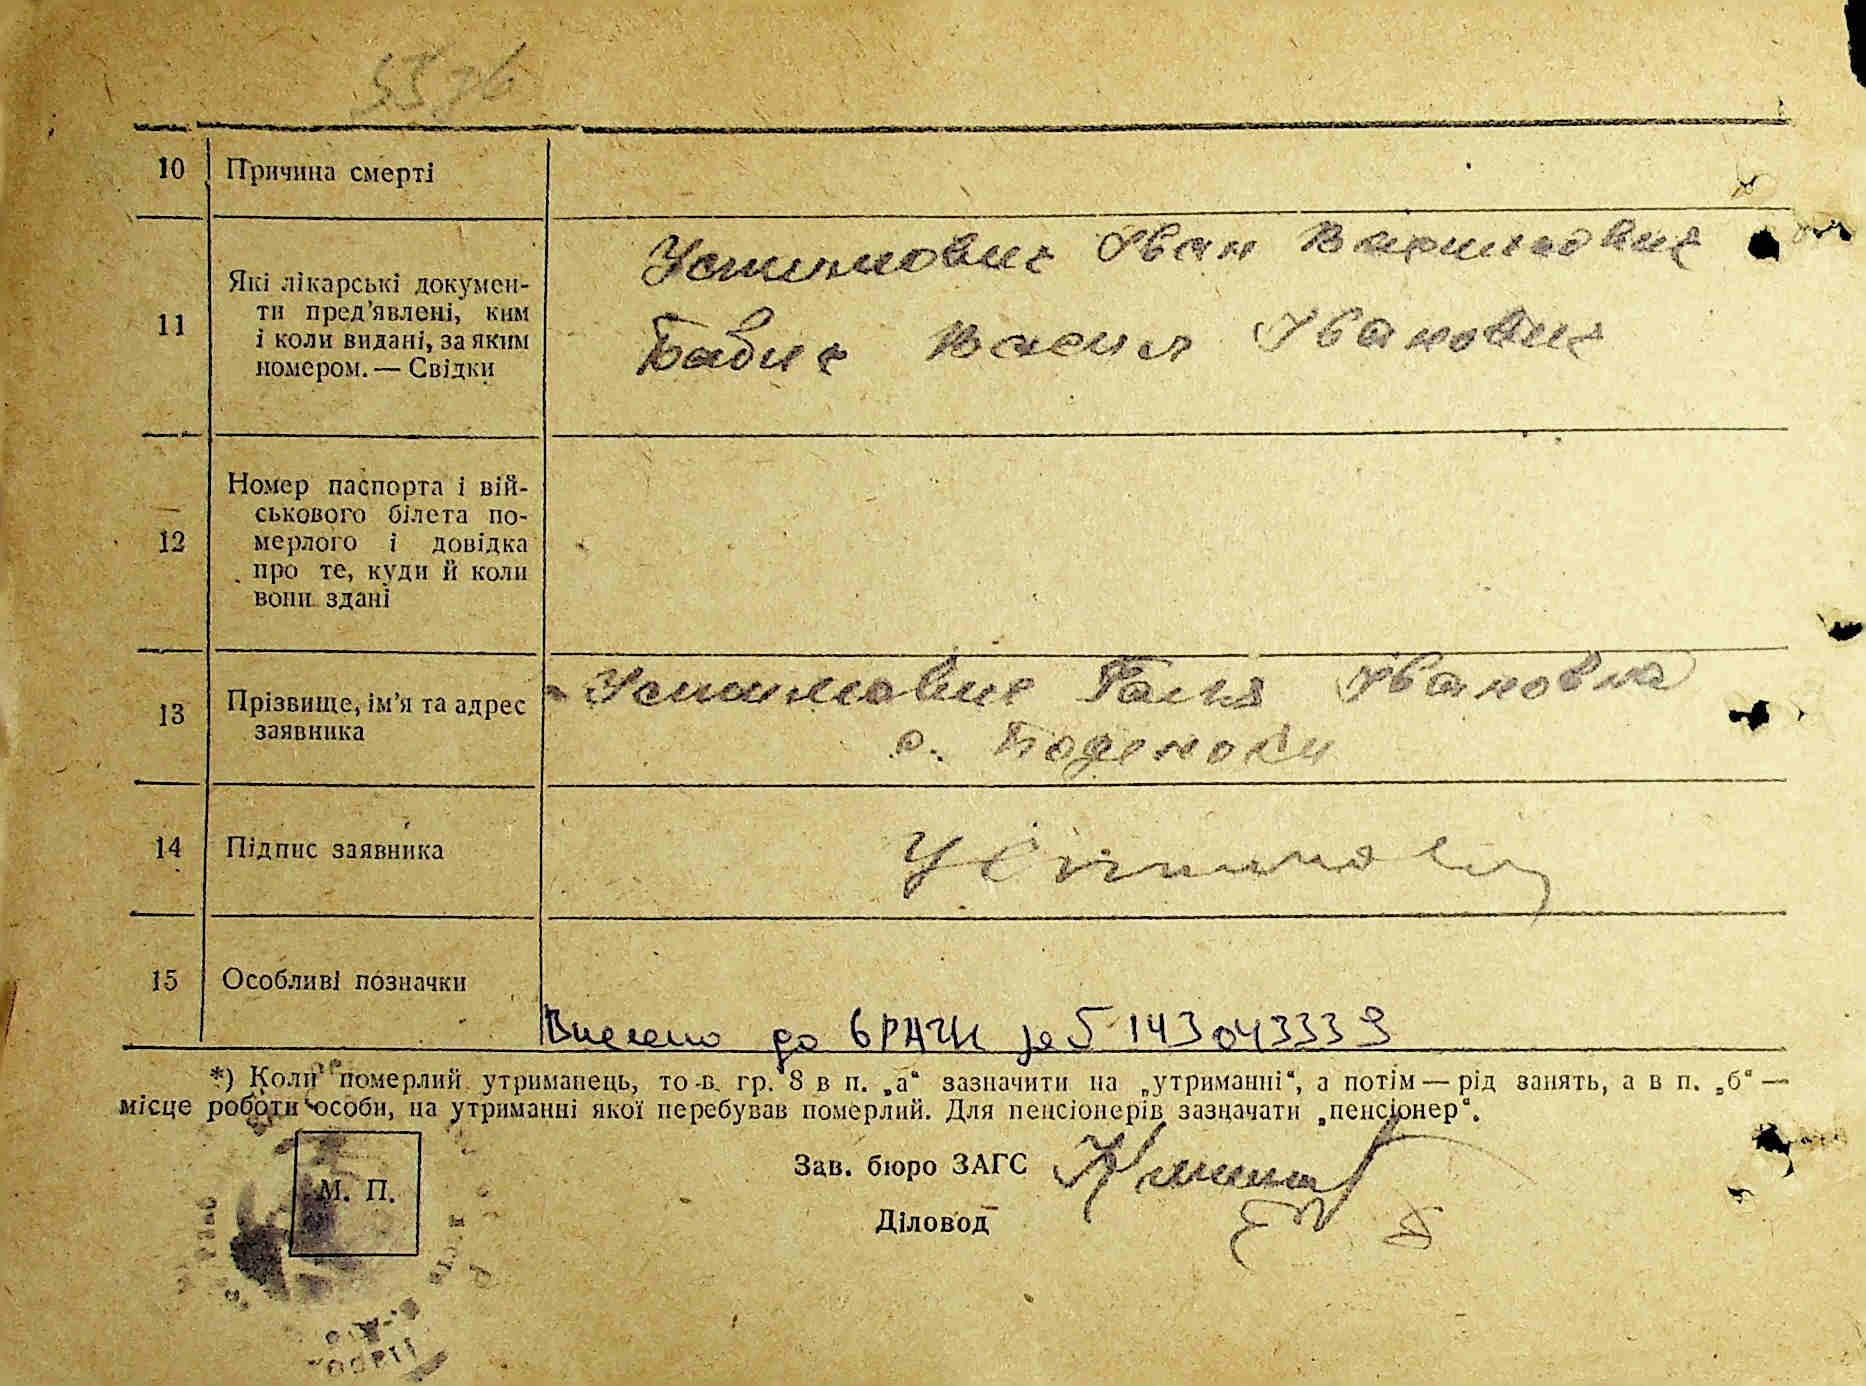 10 Причина смерті
Устимович Іван Васильович
Бабич Василь Іванович
11 Які лікарські докумен-
ти пред’явлені, ким
і коли видані, за яким
номером. — Свідки
12 Номер паспорта і вій-
ськового білета по-
мерлого і довідка
про те, куди й коли
вони здані
13 Прізвище, ім’я та адрес
заявника
Устимович Галя Івановна
с.
14 Підпис заявника
Устимович
15 Особливі позначки
Внесено до ДРАЦС за 143043339
*) Коли померлий утриманець, то в гр. 8 в п. „а“ зазначити на „утриманні“, а потім — рід занять, а в п. „б“ —
місце роботи особи, на утриманні якої перебував померлий. Для пенсіонерів зазначати „пенсіонер“.
М. П.
Зав. бюро ЗАГС
Діловод